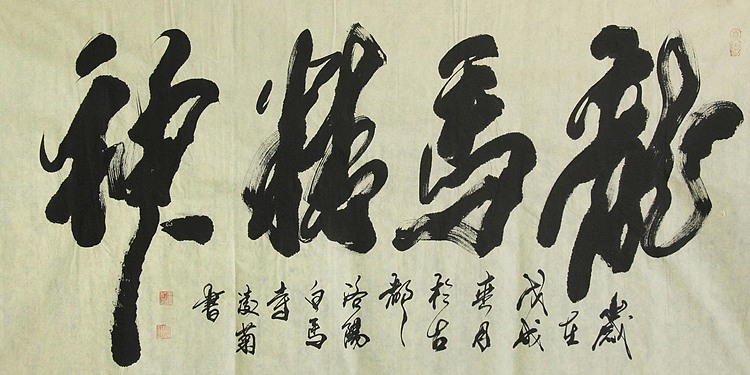 龍馬精神
歲在
戊戌
春月
於古
都
洛陽
白馬
寺
凌菊
書